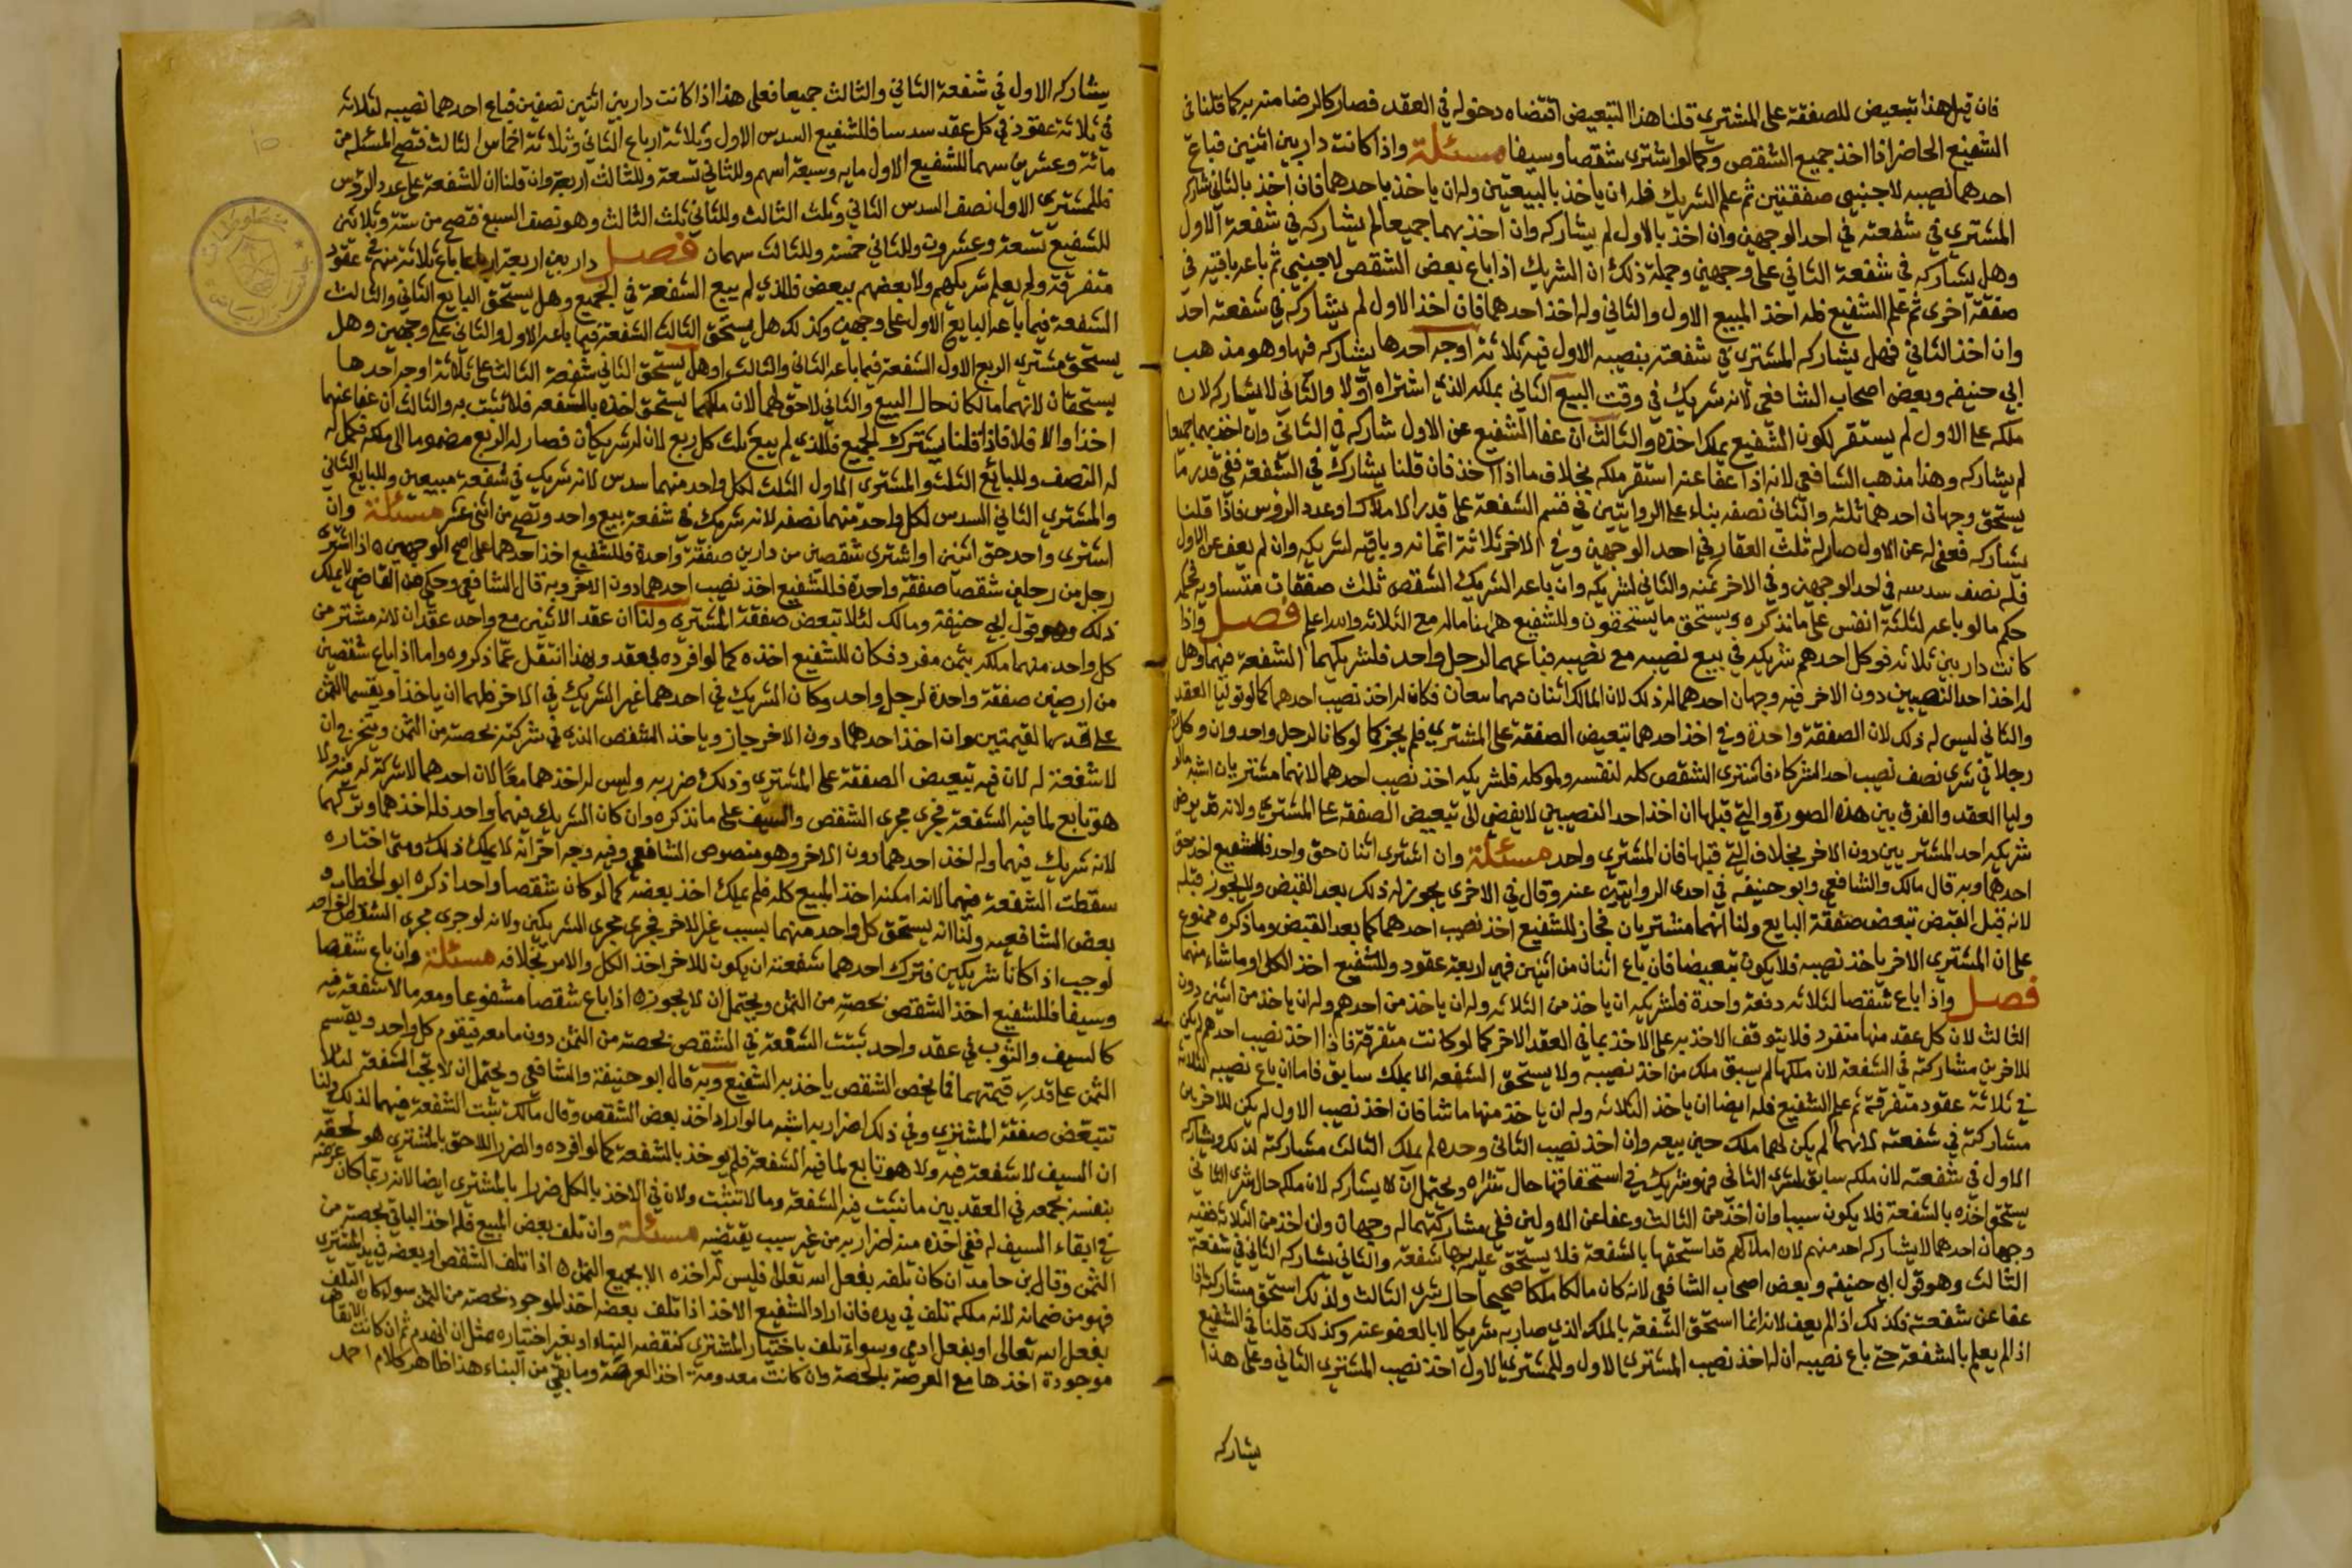 فان قيل هذا تبعيض للصفقة على المشتري قلنا هذا التبعيض اقتضاه دخوله في العقد فصار كالرضا منه به كما قلنا في
الشفيع الحاضر اذا اخذ جميع الشقص وكما لو اشترى شقصا وسيفا مسئلة واذا كانت دار بين اثنين فباع
احدهما نصيبه لاجنبي صفقتين ثم علم الشريك فله ان ياخذ بالبيعتين وله ان ياخذ باحدهما فان اخذ بالثاني شاركه
المشتري في شفعته في احد الوجهين وان اخذ بالاول لم يشاركه وان اخذ بهما جميعا لم يشاركه في شفعة الاول
وهل يشاركه في شفعة الثاني على وجهين وجملة ذلك ان الشريك اذا باع بعض الشقص لاجنبي ثم باعه باقيه في
صفقة اخرى ثم علم الشفيع فله اخذ المبيع الاول والثاني وله اخذ احدهما فان اخذ الاول لم يشاركه في شفعته احد
وان اخذ الثاني فهل يشاركه المشتري في شفعته بنصيبه الاول فيه ثلاثة اوجه احدها يشاركه فيها وهو مذهب
ابي حنيفه وبعض اصحاب الشافعي لانه شريك في وقت البيع الثاني بملكه الذي اشتراه اولا والثاني لا يشاركه لان
ملكه على الاول لم يستقر لكون الشفيع يملك اخذه والثالث ان عفا الشفيع عن الاول شاركه في الثاني وان اخذ بهما جميعا
لم يشاركه وهذا مذهب الشافعي لانه اذا عفا عنه استقر ملكه بخلاف ما اذا اخذ فان قلنا يشارك في الشفعة ففي قدر ما
يستحق وجهان احدهما ثلثه والثاني نصفه بناء على الروايتين في قسم الشفعة على قدر الاملاك او عدد الروس فاذا قلنا
يشاركه فعفي له عن الاول صار له ثلث العقار في احد الوجهين وفي الاخر ثلاثة اثمانه وباقيه لشريكه وان لم يعف عن الاول
فله نصف سدسه في احد الوجهين وفي الاخر ثمنه والثاني لشريكه وان باعه الشريك الشقص ثلث صفقات متساويه فحكمه
حكم ما لو باعه لثلثة انفس على ما نذكره ويستحق ما يستحقون وللشفيع ههنا ماله مع الثلاثه والله اعلم فصل واذا
كانت دار بين ثلاثه فوكل احدهم شريكه في بيع نصيبه مع نصيبه فباعهما لرجل واحد فلشريكهما الشفعة فيهما وهل
له اخذ احد النصيبين دون الاخر فيه وجهان احدهما له ذلك لان المالك اثنان فهما بيعان فكان له اخذ نصيب احدهما كما لو توليا العقد
والثاني ليس له ذلك لان الصفقة واحدة وفي اخذ احدهما تبعيض الصفقة على المشتري فلم يجز كما لو كانا لرجل واحد وان وكل
رجلا في شرى نصف نصيب احد الشركاء فاشترى الشقص كله لنفسه ولموكله فلشريكه اخذ نصيب احدهما لانهما مشتريان اشبه ما لو
وليا العقد والفرق بين هذه الصورة والتي قبلها ان اخذ احد النصيبين لا يفضي الى تبعيض الصفقة على المشتري ولانه قد يرضى
شركة احد المشتريين دون الاخر بخلاف التي قبلها فان المشتري واحد مسئلة وان اشترى اثنان حق واحد فللشفيع اخذ حق
احدهما وبه قال مالك والشافعي وابو حنيفه في احدى الروايتين عنه وقال في الاخرى يجوز له ذلك بعد القبض ولا يجوز قبله
لانه قبل القبض تبعض صفقة البايع ولنا انهما مشتريان فجاز للشفيع اخذ نصيب احدهما كما بعد القبض وما ذكره ممنوع
على ان المشتري الاخر ياخذ نصيبه فلا يكون تبعيضا فان باع اثنان من اثنين فهي اربعة عقود وللشفيع اخذ الكل او ما شاء منهما
فصل واذا باع شقصا لثلاثه دفعة واحدة فلشريكه ان ياخذ من الثلاثه وله ان ياخذ من احدهم وله ان ياخذ من اثنين دون
الثالث لان كل عقد منها منفرد فلا يتوقف الاخذ به على الاخذ بما في العقد الاخر كما لو كانت متفرقة فاذا اخذ نصيب احدهم لم يكن
للاخرين مشاركته في الشفعة لان ملكهما لم يسبق ملك من اخذ نصيبه ولا يستحق الشفعه الا بملك سابق فاما ان باع نصيبه لثلاثه
في ثلاثة عقود متفرقه ثم علم الشفيع فله ايضا ان ياخذ الثلاثه وله ان ياخذ منها ما شا فان اخذ نصيب الاول لم يكن للاخرين
مشاركته في شفعته لانهما لم يكن لهما ملك حين بيعه وان اخذ نصيب الثاني وحده لم يملك الثالث مشاركته لذلك ويشاركه
الاول في شفعته لان ملكه سابق لشرى الثاني فهو شريك في استحقاقها حال شراه ويحتمل ان لا يشاركه لان ملكه حال شرى الثاني
يستحق اخذه بالشفعة فلا يكون سببا وان اخذ من الثالث وعفا عن الاولين ففي مشاركتهما له وجهان وان اخذ من الثلاثه ففيه
وجهان احدهما لا يشاركه احد منهم لان املاكهم قد استحقها بالشفعة فلا يستحق عليه بها شفعة والثاني يشاركه الثاني في شفعة
الثالث وهو قول ابي حنيفه وبعض اصحاب الشافعي لانه كان مالكا ملكا صحيحا حال شرى الثالث ولذلك استحق مشاركته اذا
عفا عن شفعته فكذلك اذا لم يعف لانه انما استحق الشفعة بالملك الذي صار به شريكا لا بالعفو عنه وكذلك قلنا في الشفيع
اذا لم يعلم بالشفعة حتى باع نصيبه ان له اخذ نصيب المشتري الاول وللمشتري الاول اخذ نصيب المشتري الثاني وعلى هذا
يشاركه
يشاركه الاول في شفعة الثاني والثالث جميعا فعلى هذا اذا كانت دار بين اثنين نصفين فباع احدهما نصيبه لثلاثه
في ثلاثة عقود في كل عقد سدسا فللشفيع السدس الاول وثلاثة ارباع الثاني وثلاثة اخماس الثالث فتصح المسئله من
مائة وعشرين سهما للشفيع الاول مايه وسبعة اسهم وللثاني تسعة وللثالث اربعة وان قلنا ان الشفعة على عدد الروس
فللمشتري الاول نصف السدس الثاني وثلث الثالث وللثاني ثلث الثالث وهو نصف التسع فتصح من ستة وثلاثين
للشفيع تسعة وعشرون وللثاني خمسة وللثالث سهمان فصل دار بين اربعة ارباعا باع ثلاثة منهم في عقود
متفرقة ولم يعلم شريكهم ولا بعضهم ببعض فللذي لم يبع الشفعة في الجميع وهل يستحق البايع الثاني والثالث
الشفعة فيما باعه البايع الاول على وجهين وكذلك هل يستحق الثالث الشفعة فيما باعه الاول والثاني على وجهين وهل
يستحق مشتري الربع الاول الشفعة فيما باعه الثاني والثالث او هل يستحق الثاني شفعة الثالث على ثلاثة اوجه احدها
يستحقان لانهما مالكان حال البيع والثاني لا حق لهما لان ملكهما يستحق اخذه بالشفعه فلا تثبت به والثالث ان عفا عنهما
اخذا والا فلا فاذا قلنا يشترك الجميع فللذي لم يبع ثلث كل ربع لان له شريكان فصار له الربع مضموما الى ملكه فكمل له
له النصف وللبائع الثالث والمشتري الاول الثلث لكل واحد منهما سدس لانه شريك في شفعة مبيعين وللبايع الثاني
والمشتري الثاني السدس لكل واحد منهما نصفه لانه شريك في شفعة بيع واحد وتصح من اثني عشر مسئلة وان
اشترى واحد حق اثنين او اشترى شقصين من دارين صفقة واحدة فللشفيع اخذ احدهما على اصح الوجهين اذا اشترى
رجل من رجلين شقصا صفقة واحدة فللشفيع اخذ نصيب احدهما دون الاخر وبه قال الشافعي وحكي عن القاضي لا يملك
ذلك وهو قول ابي حنيفة ومالك لئلا تتبعض صفقة المشتري ولنا ان عقد الاثنين مع واحد عقدان لانه مشتر من
كل واحد منهما ملكه بثمن مفرد فكان للشفيع اخذه كما لو افرده بعقد وبهذا انتقل عما ذكروه واما اذا باع شقصين
من ارضين صفقة واحدة لرجل واحد وكان الشريك في احدهما غير الشريك في الاخر فلهما ان ياخذا ويقسما الثمن
على قدر القيمتين وان اخذ احدهما دون الاخر جاز وياخذ الشقص الذي في شركته بحصته من الثمن ويتخرج ان
لا شفعة له لان فيه تبعيض الصفقة على المشتري وذلك ضرر به وليس له اخذهما معا لان احدهما لا شركة له فيه ولا
هو تابع لما فيه الشفعة فجرى مجرى الشقص والسيف على ما نذكره وان كان الشريك فيهما واحد فله اخذهما وتركهما
لانه شريك فيهما وله اخذ احدهما دون الاخر وهو منصوص الشافعي وفيه وجه اخر انه لا يملك ذلك ومتى اختاره
سقطت الشفعة فيهما لانه امكنه اخذ المبيع كله فلم يملك اخذ بعضه كما لو كان شقصا واحدا ذكره ابو الخطاب و
بعض الشافعيه ولنا انه يستحق كل واحد منهما بسبب غير الاخر فجرى مجرى الشريكين ولانه لو جرى مجرى الشقص الواحد
لوجب اذا كانا شريكين فترك احدهما شفعته ان يكون للاخر اخذ الكل والامر بخلافه مسئلة وان باع شقصا
وسيفا فللشفيع اخذ الشقص بحصته من الثمن ويحتمل ان لا يجوز اذا باع شقصا مشفوعا ومعه ما لا شفعة فيه
كالسيف والثوب في عقد واحد ثبتت الشفعة في الشقص بحصته من الثمن دون ما معه فيقوم كل واحد ويقسم
الثمن على قدر قيمتهما فما يخص الشقص ياخذ به الشفيع وبه قال ابو حنيفة والشافعي ويحتمل ان لا تجب الشفعة لئلا
تتبعض صفقة المشتري وفي ذلك اضرار به اشبه ما لو اراد اخذ بعض الشقص وقال مالك تثبت الشفعة فيهما لذلك ولنا
ان السيف لا شفعة فيه ولا هو تابع لما فيه الشفعة فلم يوخذ بالشفعة كما لو افرده والضرر اللاحق بالمشتري هو لحقه
بنفسه بجمعه في العقد بين ما تثبت فيه الشفعة وما لا تثبت ولان في الاخذ بالكل ضررا بالمشتري ايضا لانه ربما كان غرضه
في ابقاء السيف له ففي اخذه منه اضرار به من غير سبب يقتضيه مسئلة وان تلف بعض المبيع فله اخذ الباقي بحصته من
الثمن وقال ابن حامد ان كان تلفه بفعل الله تعالى فليس له اخذه الا بجميع الثمن اذا تلف الشقص او بعضه في يد المشتري
فهو من ضمانه لانه ملكه تلف في يده فان اراد الشفيع الاخذ اذا تلف بعضه اخذ الموجود بحصته من الثمن سواء كان التلف
بفعل الله تعالى او بفعل ادمي وسواء تلف باختيار المشتري كنقضه البناء او بغير اختياره مثل ان انهدم ثم ان كانت الانقاض
موجودة اخذها مع العرصة بالحصة وان كانت معدومة اخذ العرصة وما بقي من البناء هذا ظاهر كلام احمد